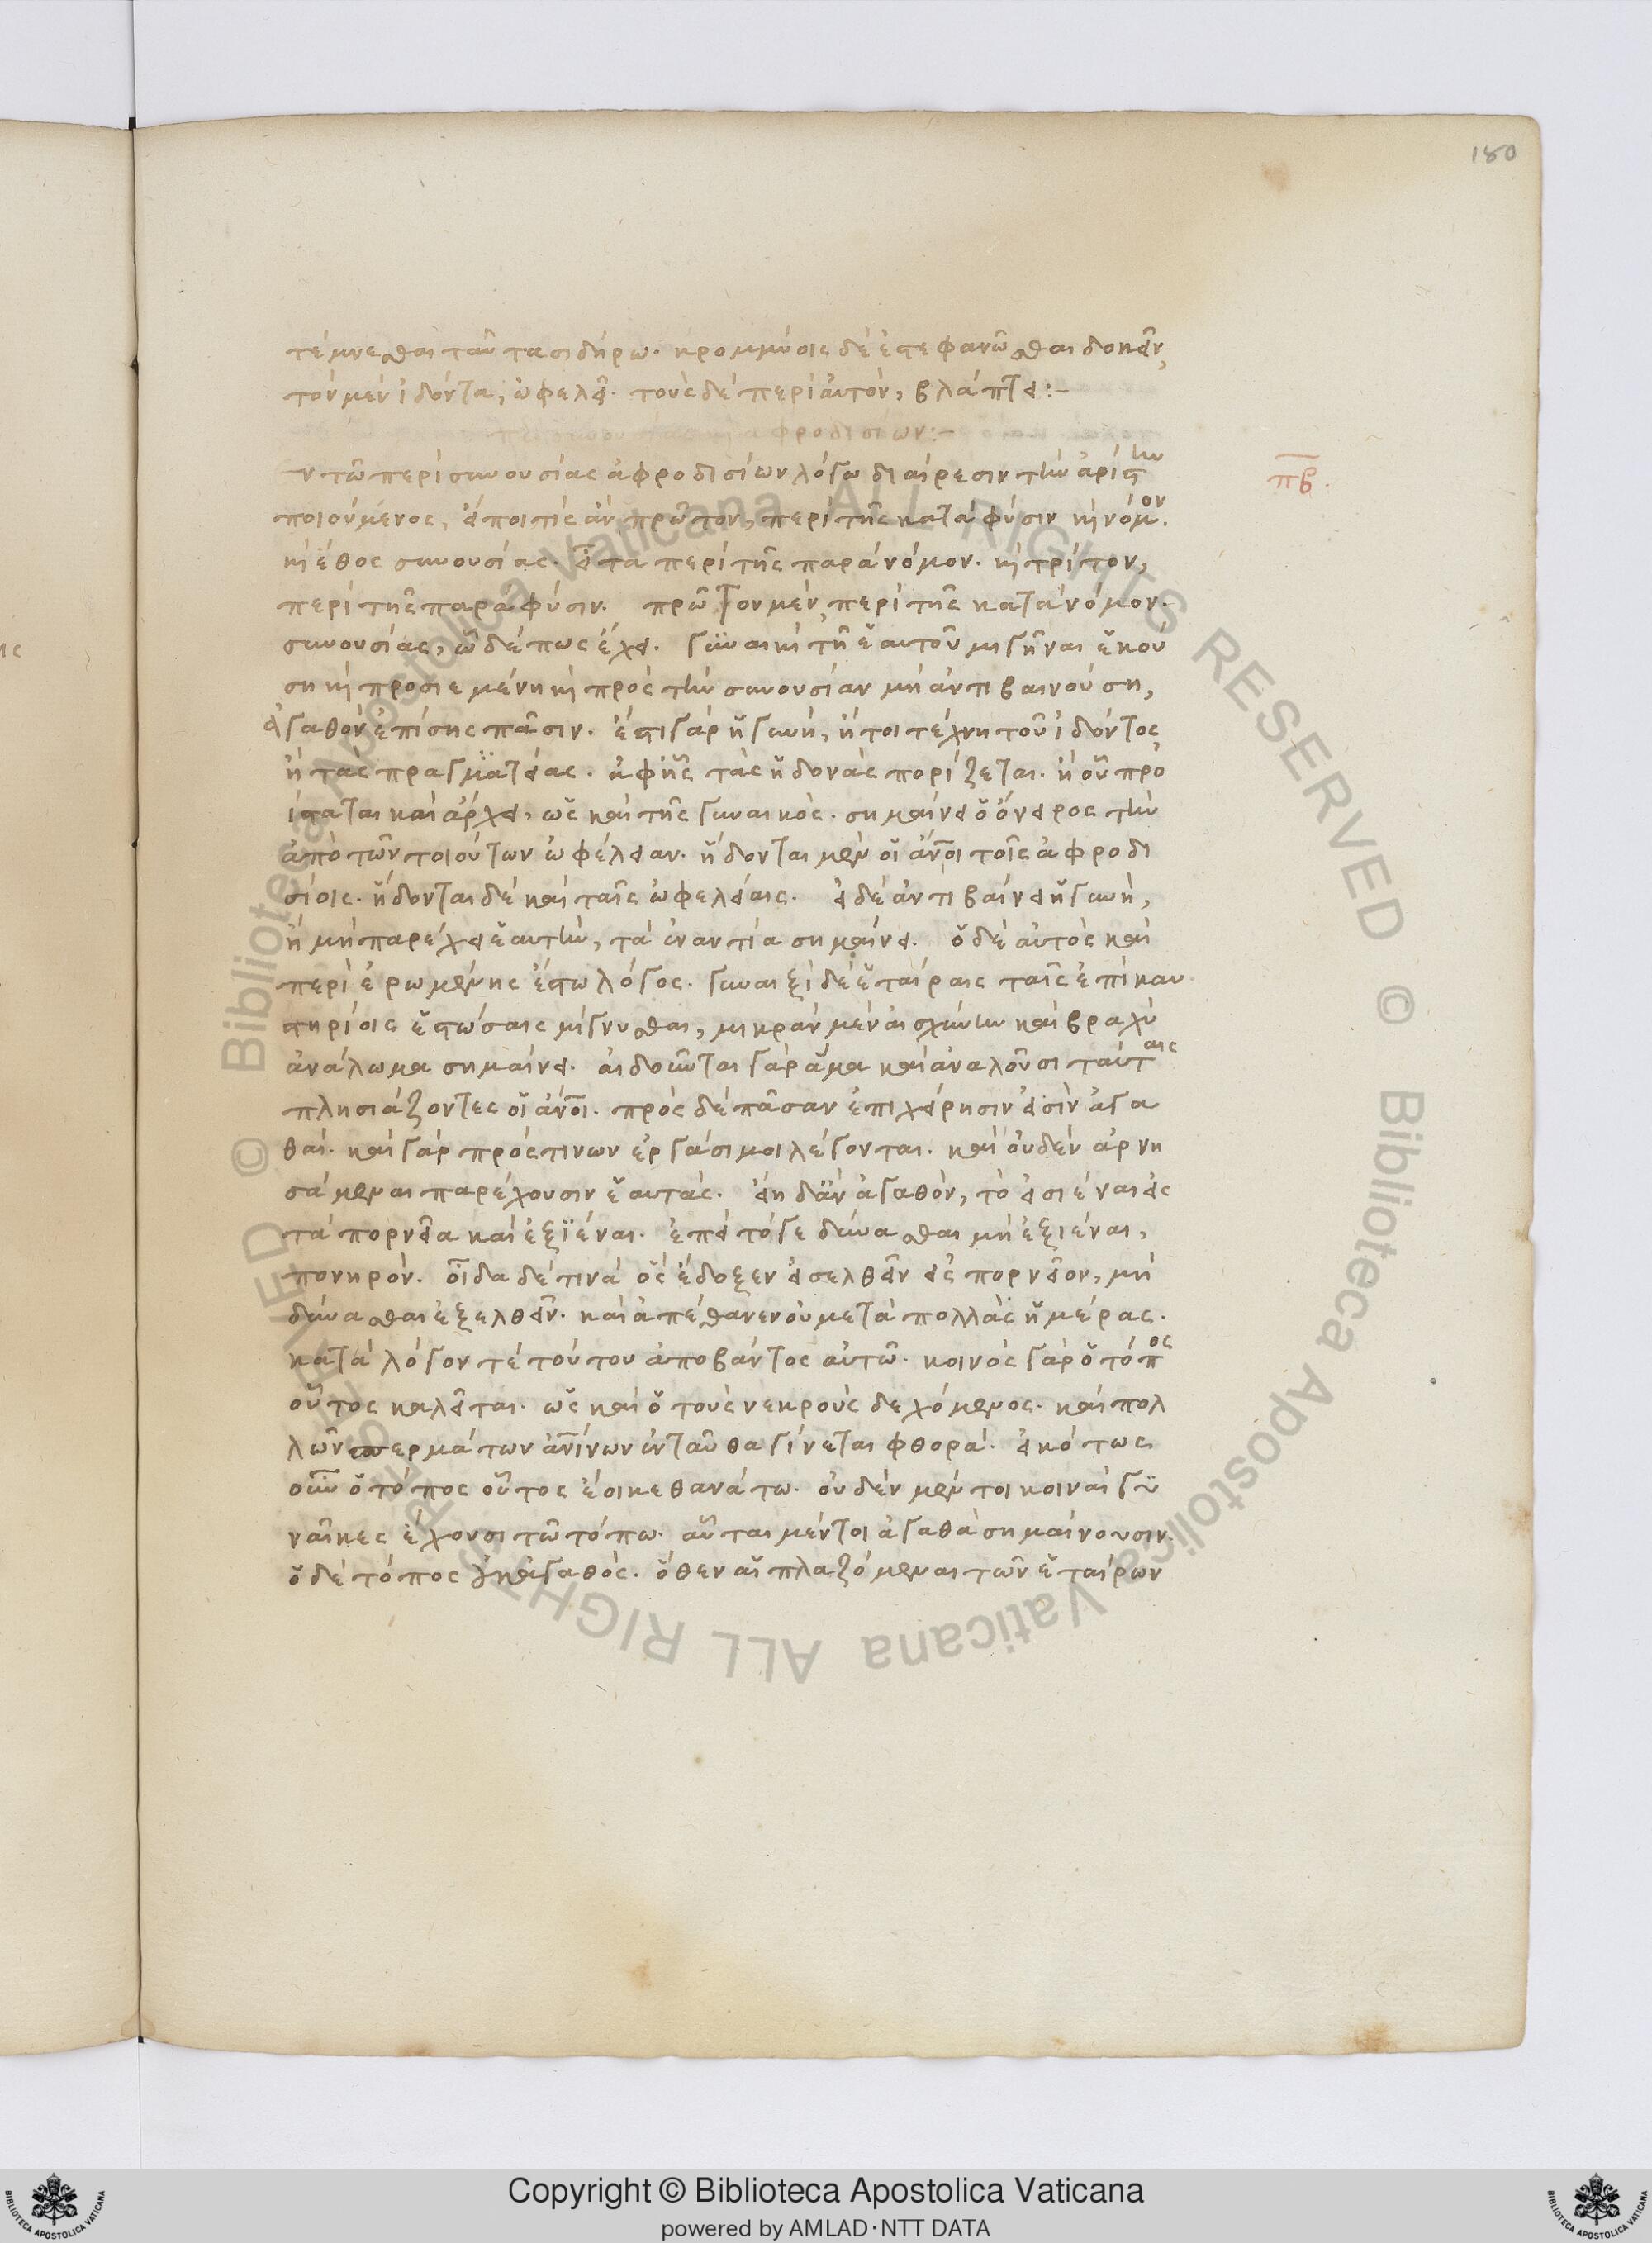 180
τέμνεσθαι ταῦτα σιδήρω. κρομμύοις δὲ ἐστεφανῶσθαι δοκεῖν,
τὸν μὲν ἰδόντα, ὠφελεῖ. τοὺς δὲ περὶ αὐτὸν, βλάπτει:-
ἀφροδισίων:-
ν τῶ περὶ συνουσίας ἀφροδισίων λόγω διαίρεσιν τὴν ἀρίστην
πβ.
ποιούμενος, εἴποι τίς ἂν πρῶτον, περὶ τῆς κατὰ φύσιν κὶ νόμον.
κὶ ἔθος συνουσίας. εἶτα περὶ τῆς παρὰ νόμον. κὶ τρίτον,
περὶ τῆς παρὰ φύσιν. πρῶτον μὲν περὶ τῆς κατὰ νόμον.
συνουσίας, ὧδέ πως ἔχει. γϋναικὶ τῆ ἑαυτοῦ μιγῆναι ἑκού
ση κὶ προσιεμένη κὶ πρὸς τὴν συνουσίαν μὴ ἀντιβαινούση,
ἀγαθὸν ἐπίσης πᾶσιν. ἔστι γὰρ ἡ γυνὴ, ἤτοι τέχνη τοῦ ἰδόντος
ἢ τὰς πραγματείας. ἀφ' ἧς τὰς ἡδονὰς πορίζεται. ἢ οὗ προ
ίσταται καὶ ἄρχει, ὡς καὶ τῆς γυναικός. σημαίνει ὁ ὄνειρος τὴν
ἀπὸ τῶν τοιούτων ὠφέλειαν. ἥδονται μὲν οἱ ἄνοι τοῖς ἀφροδι
σίοις. ἥδονται δὲ καὶ ταῖς ὠφελείαις. εἰ δὲ ἀντιβαίνει ἡ γυνὴ,
ἢ μὴ παρέχει ἑαυτὴν, τὰ ἐναντία σημαίνει. ὁ δὲ αὐτὸς καὶ
περὶ ἐρωμένης ἔστω λόγος. γυναιξὶ δὲ ἑταίραις ταῖς ἐπὶ καυ
στηρίοις ἑστώσαις μίγνυσθαι, μικρὰν μὲν αἰσχύνην καὶ βραχὺ
ἀνάλωμα σημαίνει. αἰδοῦνται γὰρ ἅμα καὶ ἀναλοῦσι ταύταις
πλησιάζοντες οἱ ἄνοι. πρὸς δὲ πᾶσαν ἐπιχείρησιν εἰσὶν ἀγα
θαί. καὶ γὰρ πρός τινων ἐργάσιμοι λέγονται. καὶ οὐδὲν ἀρνη
σάμεναι παρέχουσιν ἑαυτάς. εἴη δ' ἂν ἀγαθὸν, τὸ εἰσιέναι εἰς
τὰ πορνεῖα καὶ ἐξϊέναι. ἐπεὶ τό γε δύνασθαι μὴ ἐξιέναι,
πονηρόν. οἶδα δέ τινὰ ὃς ἔδοξεν εἰσελθεῖν εἰς πορνεῖον, μὴ
δύνασθαι ἐξελθεῖν. καὶ ἀπέθανεν οὐ μετὰ πολλὰς ἡμέρας.
κατὰ λόγον τὲ τούτου ἀποβάντος αὐτῶ. κοινὸς γὰρ ὁ τόπος
οὗτος καλεῖται. ὡς καὶ ὁ τοὺς νεκροὺς δεχόμενος. καὶ πολ
λῶν σπερμάτων ἀνίνων ἐνταῦθα γίνεται φθορά. εἰκότως
οὖν ὁ τόπος οὗτος ἔοικε θανάτω. οὐδὲν μέντοι κοιναὶ γϋ
ναῖκες ἔχουσι τῶ τόπω. αὗται μέντοι ἀγαθὰ σημαίνουσιν.
ὁ δὲ τόπος ἀγαθός. ὅθεν αἱ πλαζόμεναι τῶν ἑταίρων
Copyright © Biblioteca Apostolica Vaticana
powered by AMLAD·NTT DATA